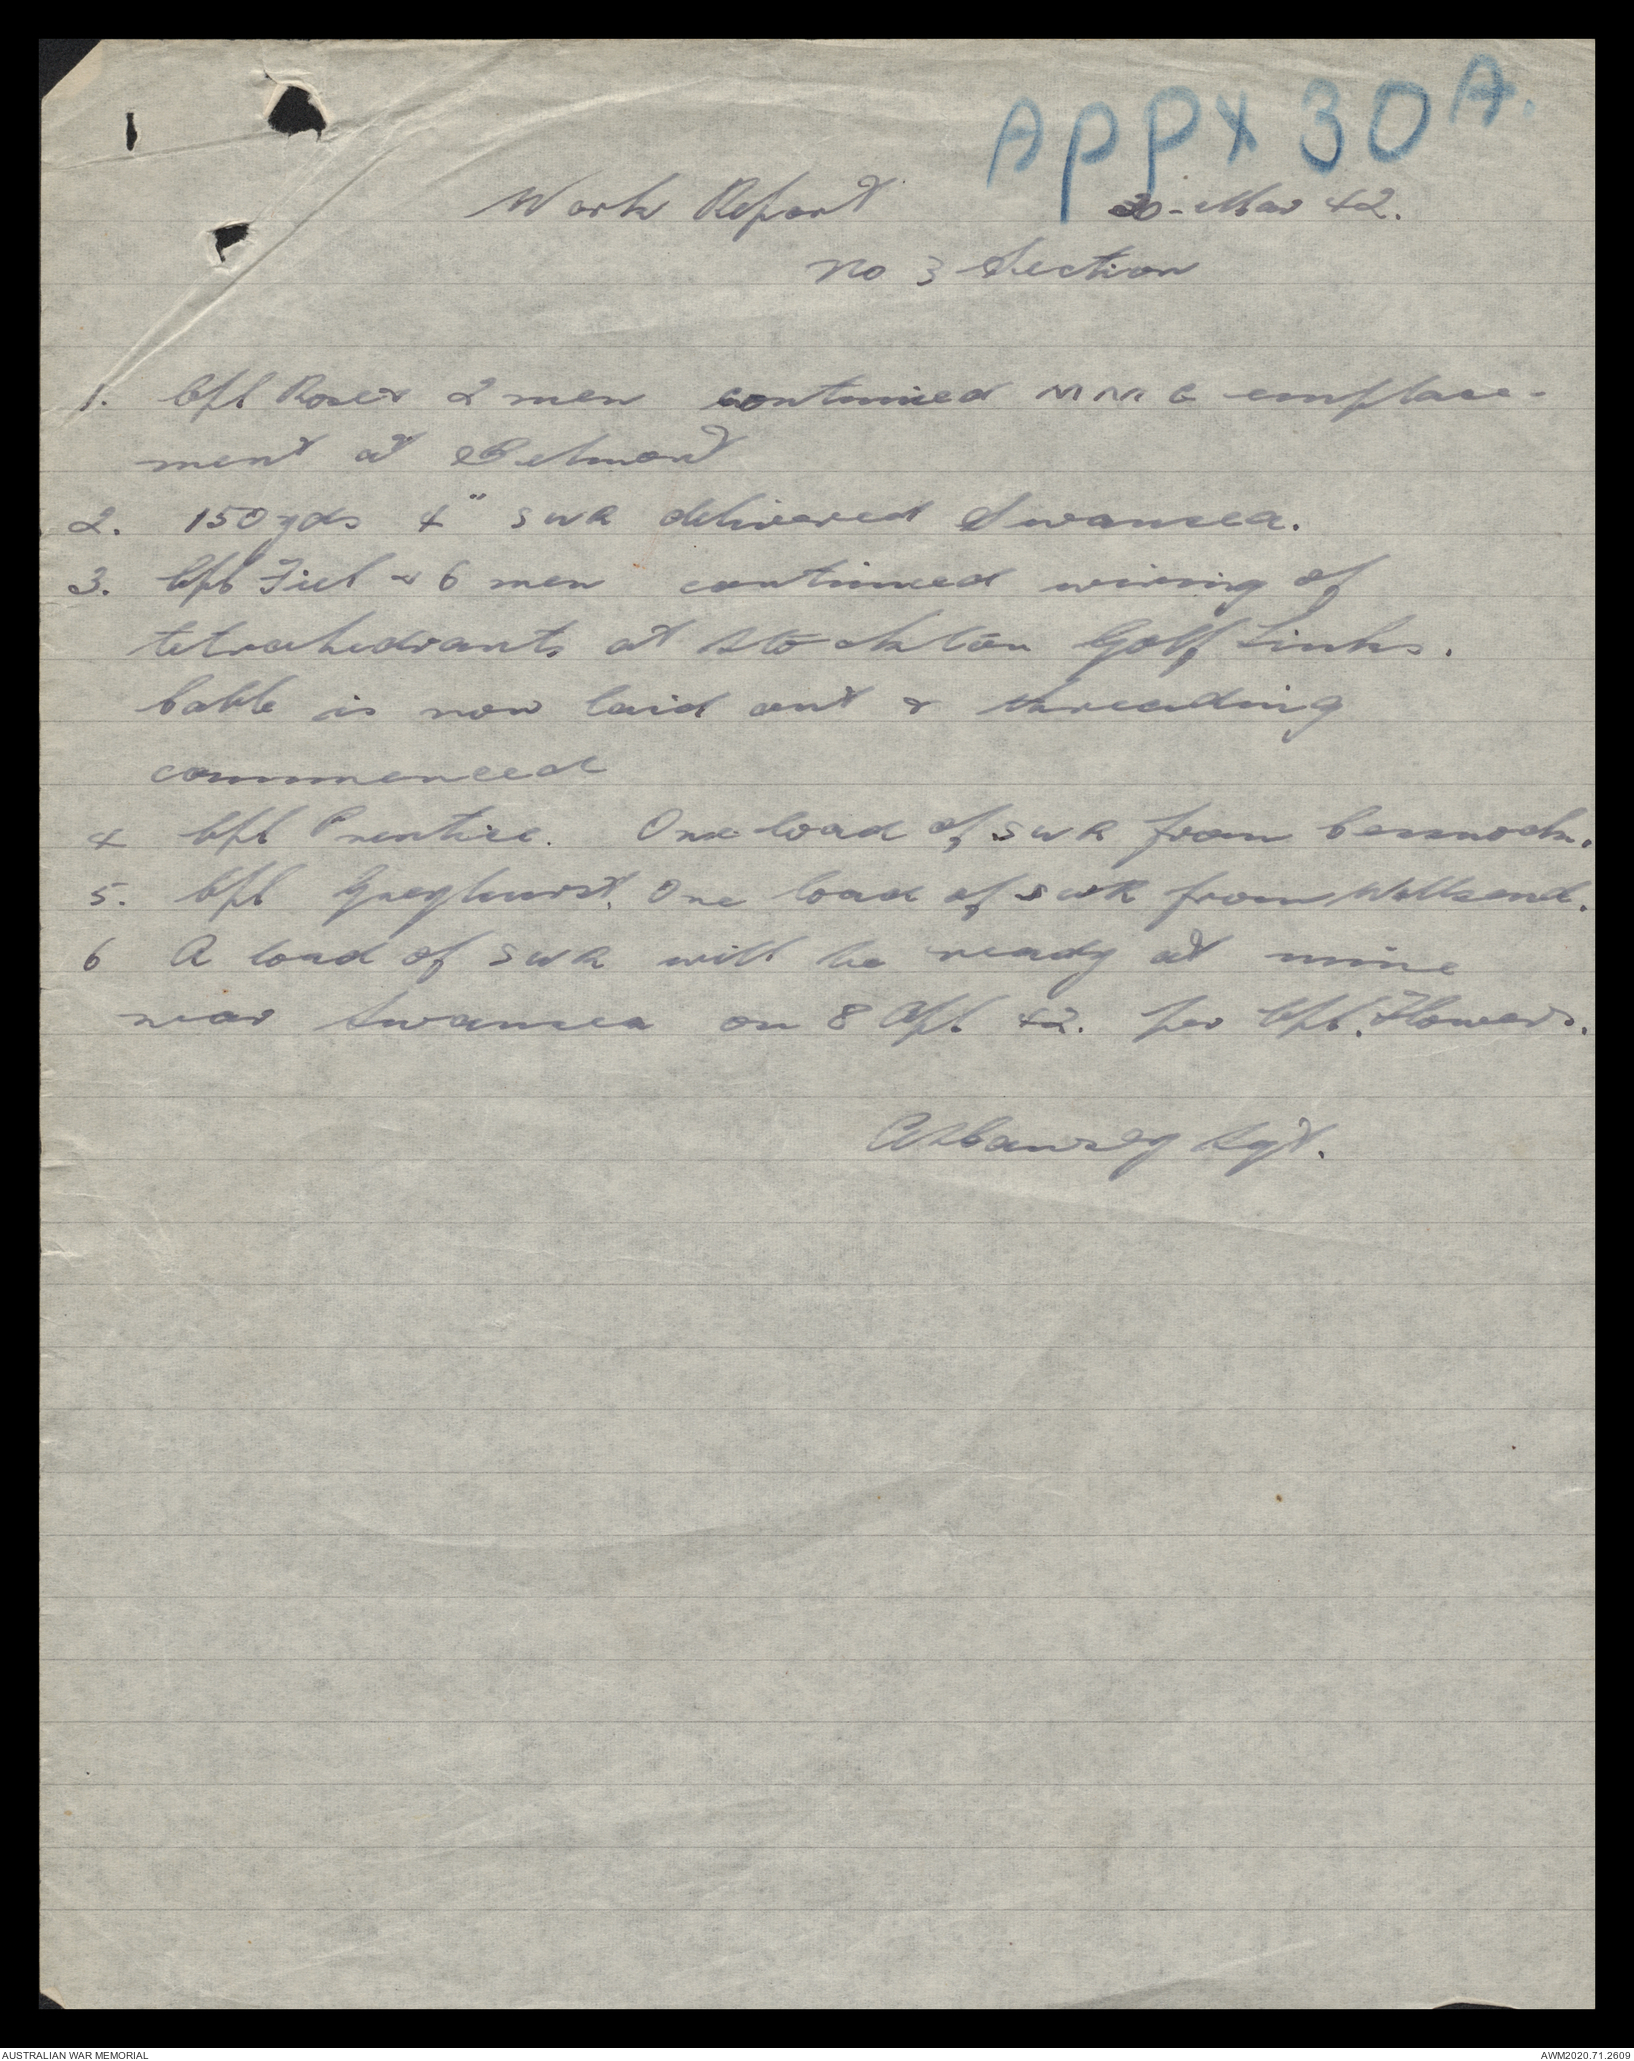 APPX 30A.
Work Report 30-Mar 42.
No 3 Section
1. Cpl Rose & 2 men continued M M G emplace-
ment at Belmont
2. 150 yds 4" SWR delivered Swansea.
3. Cpl Fiel & 6 men continued wiring of
tetrahedrants at Stockton Golf Links.
Cable is now laid out & threading
commenced
4 Cpl Prentice. One load of SWR from Cessnock.
5. Cpl Greyhurst. One load of SWR from Wallsend.
6 A load of SWR will be ready at mine
near Swansea on 8 Apl 42. per Cpl. Flowers.
Sgt.
AUSTRALIAN WAR MEMORIAL
AWM2020.71.2609